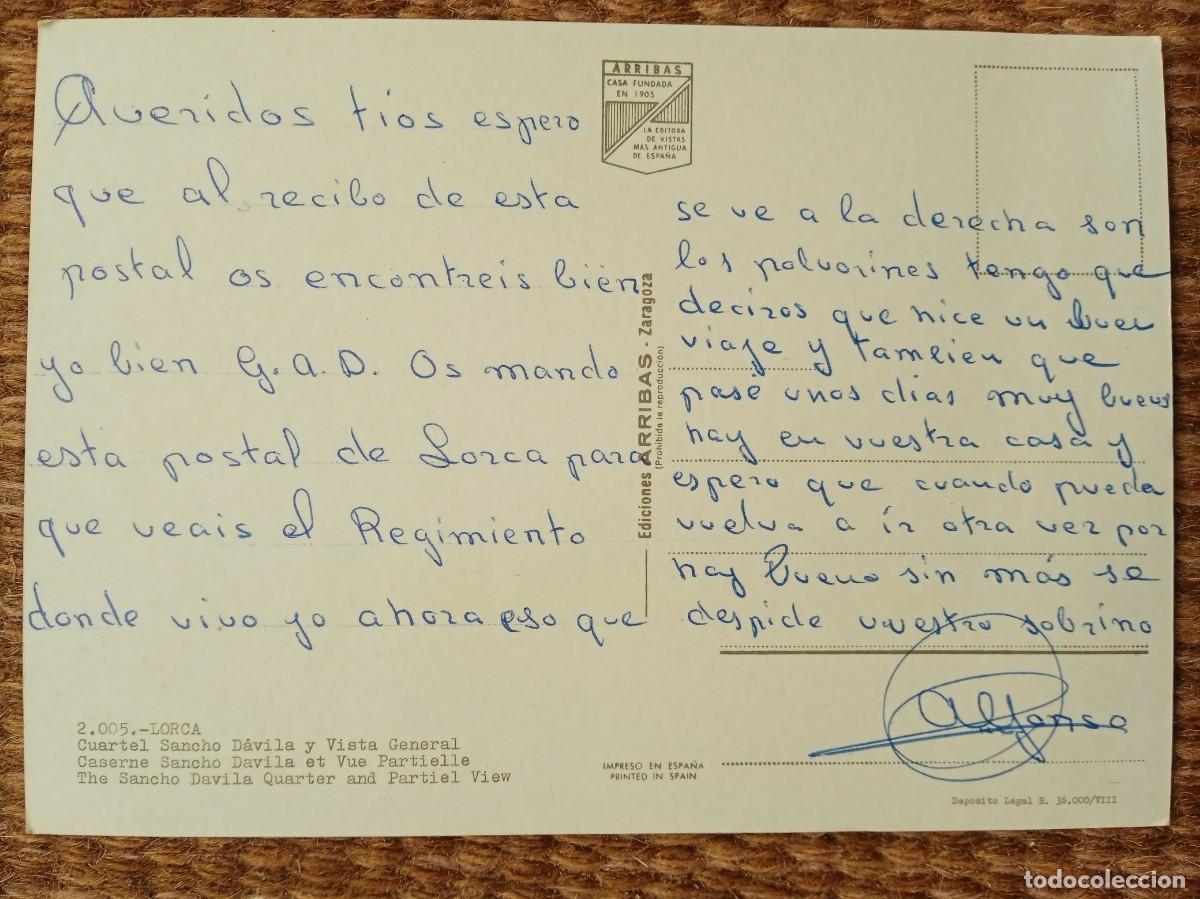 Queridos tios espero
que al recibo de esta
postal os encontreis bien
yo bien G.A.D. Os mando
esta postal de Lorca para
que veais el Regimiento
donde vivo yo ahora eso que
ARRIBAS
CASA FUNDADA
EN 1905
LA EDITORA
DE VISTAS
MAS ANTIGUA
DE ESPAÑA
Ediciones ARRIBAS - Zaragoza
(Prohibida la reproducción)
se ve a la derecha son
los polvorines tengo que
deciros que hice un buen
viaje y tambien que
pasé unos dias muy buenos
hay en vuestra casa y
espero que cuando pueda
vuelva a ir otra vez por
hay bueno sin más se
despide vuestro sobrino
Alfonso
2.005.-LORCA
Cuartel Sancho Dávila y Vista General
Caserne Sancho Davila et Vue Partielle
The Sancho Davila Quarter and Partiel View
IMPRESO EN ESPAÑA
PRINTED IN SPAIN
Deposito Legal B. 36.000/VIII
todocoleccion